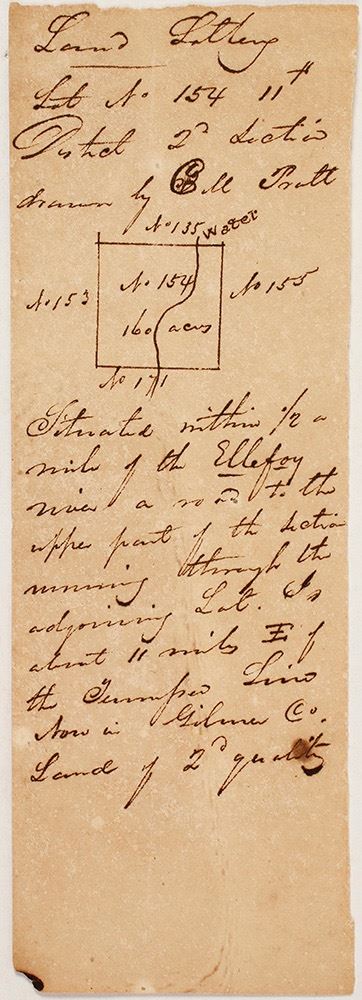 Land Lottery
Lot No 154 11th
District 2d Section
drawn by E M Pratt
No 135 Water
No 153 No 154 No 155
160 acres
No 171
Situated within 1/2 a
mile of the Ellefoy
river a road to the
upper part of the section
running through the
adjoining Lot. Is
about 11 miles E of
the Tennessee Line
Now in Gilmer Co.
Land of 2d quality